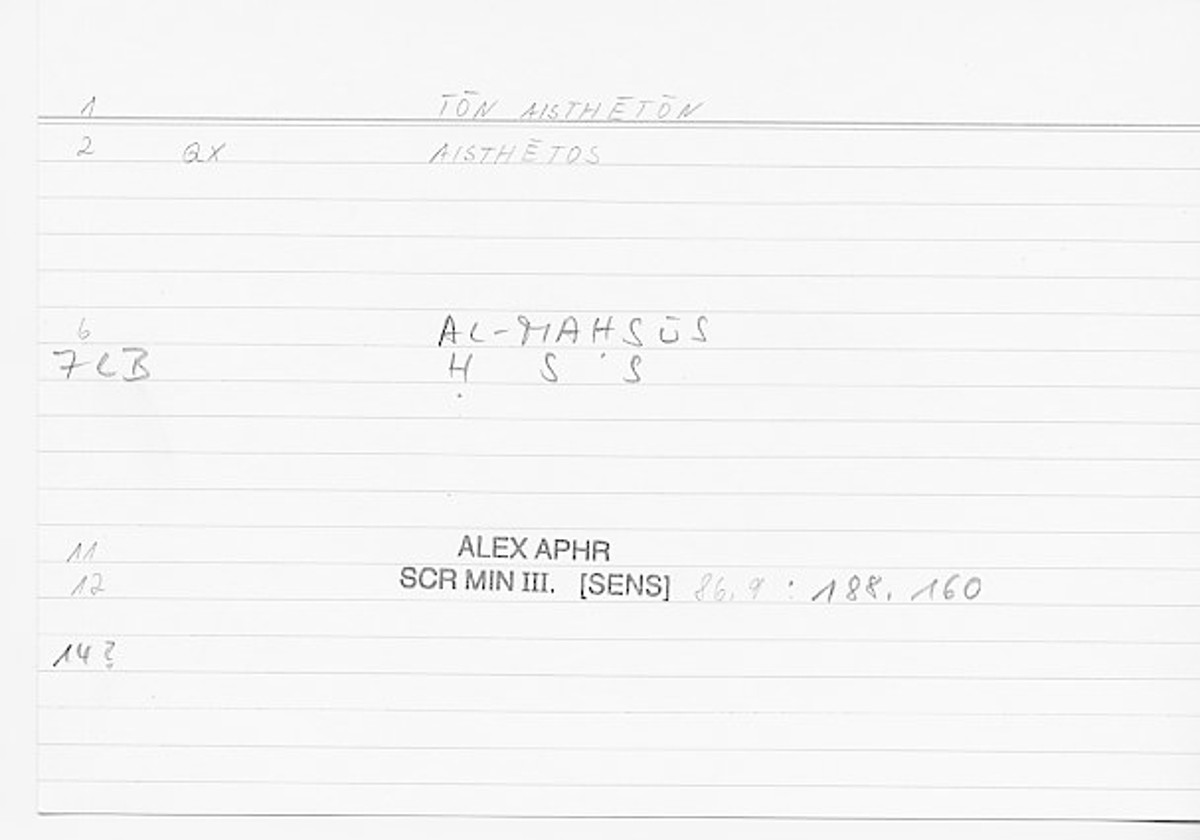 1 TŌN AISTHĒTŌN
2 QX AISTHĒTOS
6 AL-MAHSŪS
7LB Ḥ S ' S
11 ALEX APHR
12 SCR MIN III. [SENS] 86,9 : 188. 160
14